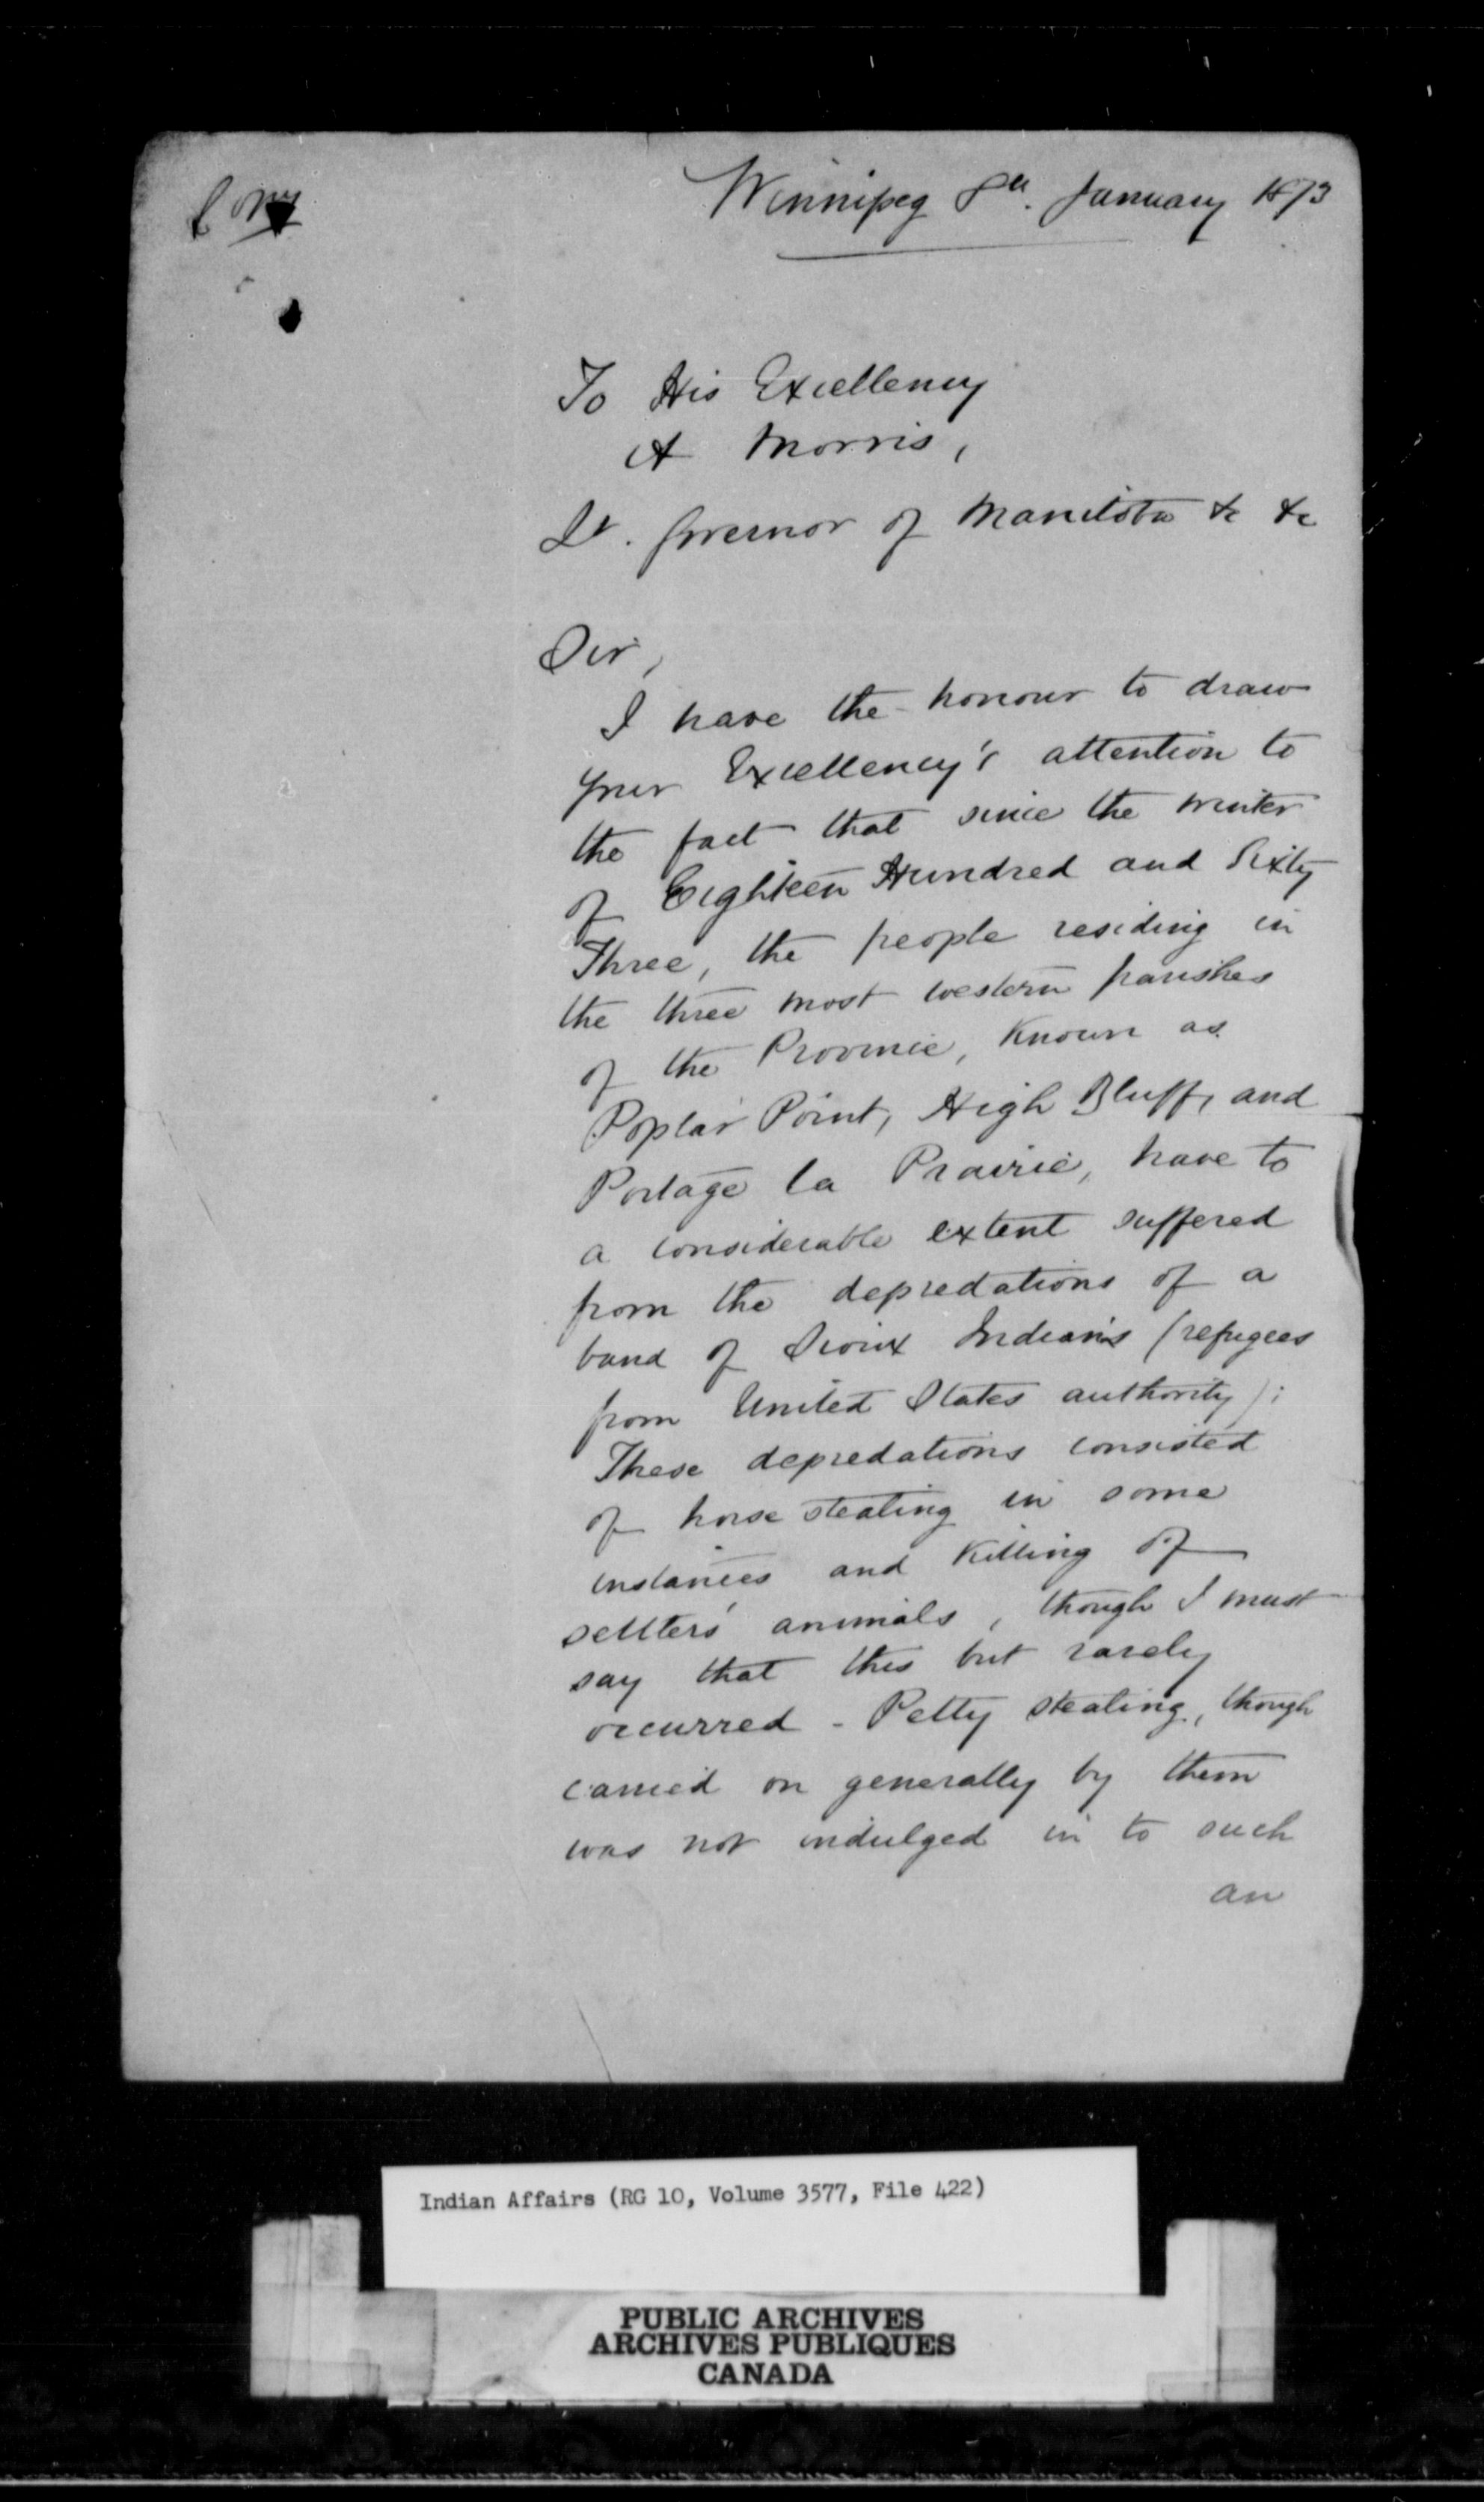 Copy
Winnipeg 8th. January 1873
To His Excellency
A Morris,
Lt. Governor of Manitoba &c &c
Sir,
I have the honour to draw
your Excellency's attention to
the fact that since the winter
of Eighteen Hundred and Sixty
Three, the people residing in
the three most western parishes
of the Province, Known as
Poplar Point, High Bluff, and
Portage la Prairie, have to
a considerable extent suffered
from the depredations of a
band of Sioux Indians (refugees
from United States authority);
These depredations consisted
of horse stealing in some
instances and Killing of
settlers' animals, though I must
say that this but rarely
occurred - Petty stealing, though
carried on generally by them
was not indulged in to such
an
Indian Affairs (RG 10, Volume 3577, File 422)
PUBLIC ARCHIVES
ARCHIVES PUBLIQUES
CANADA